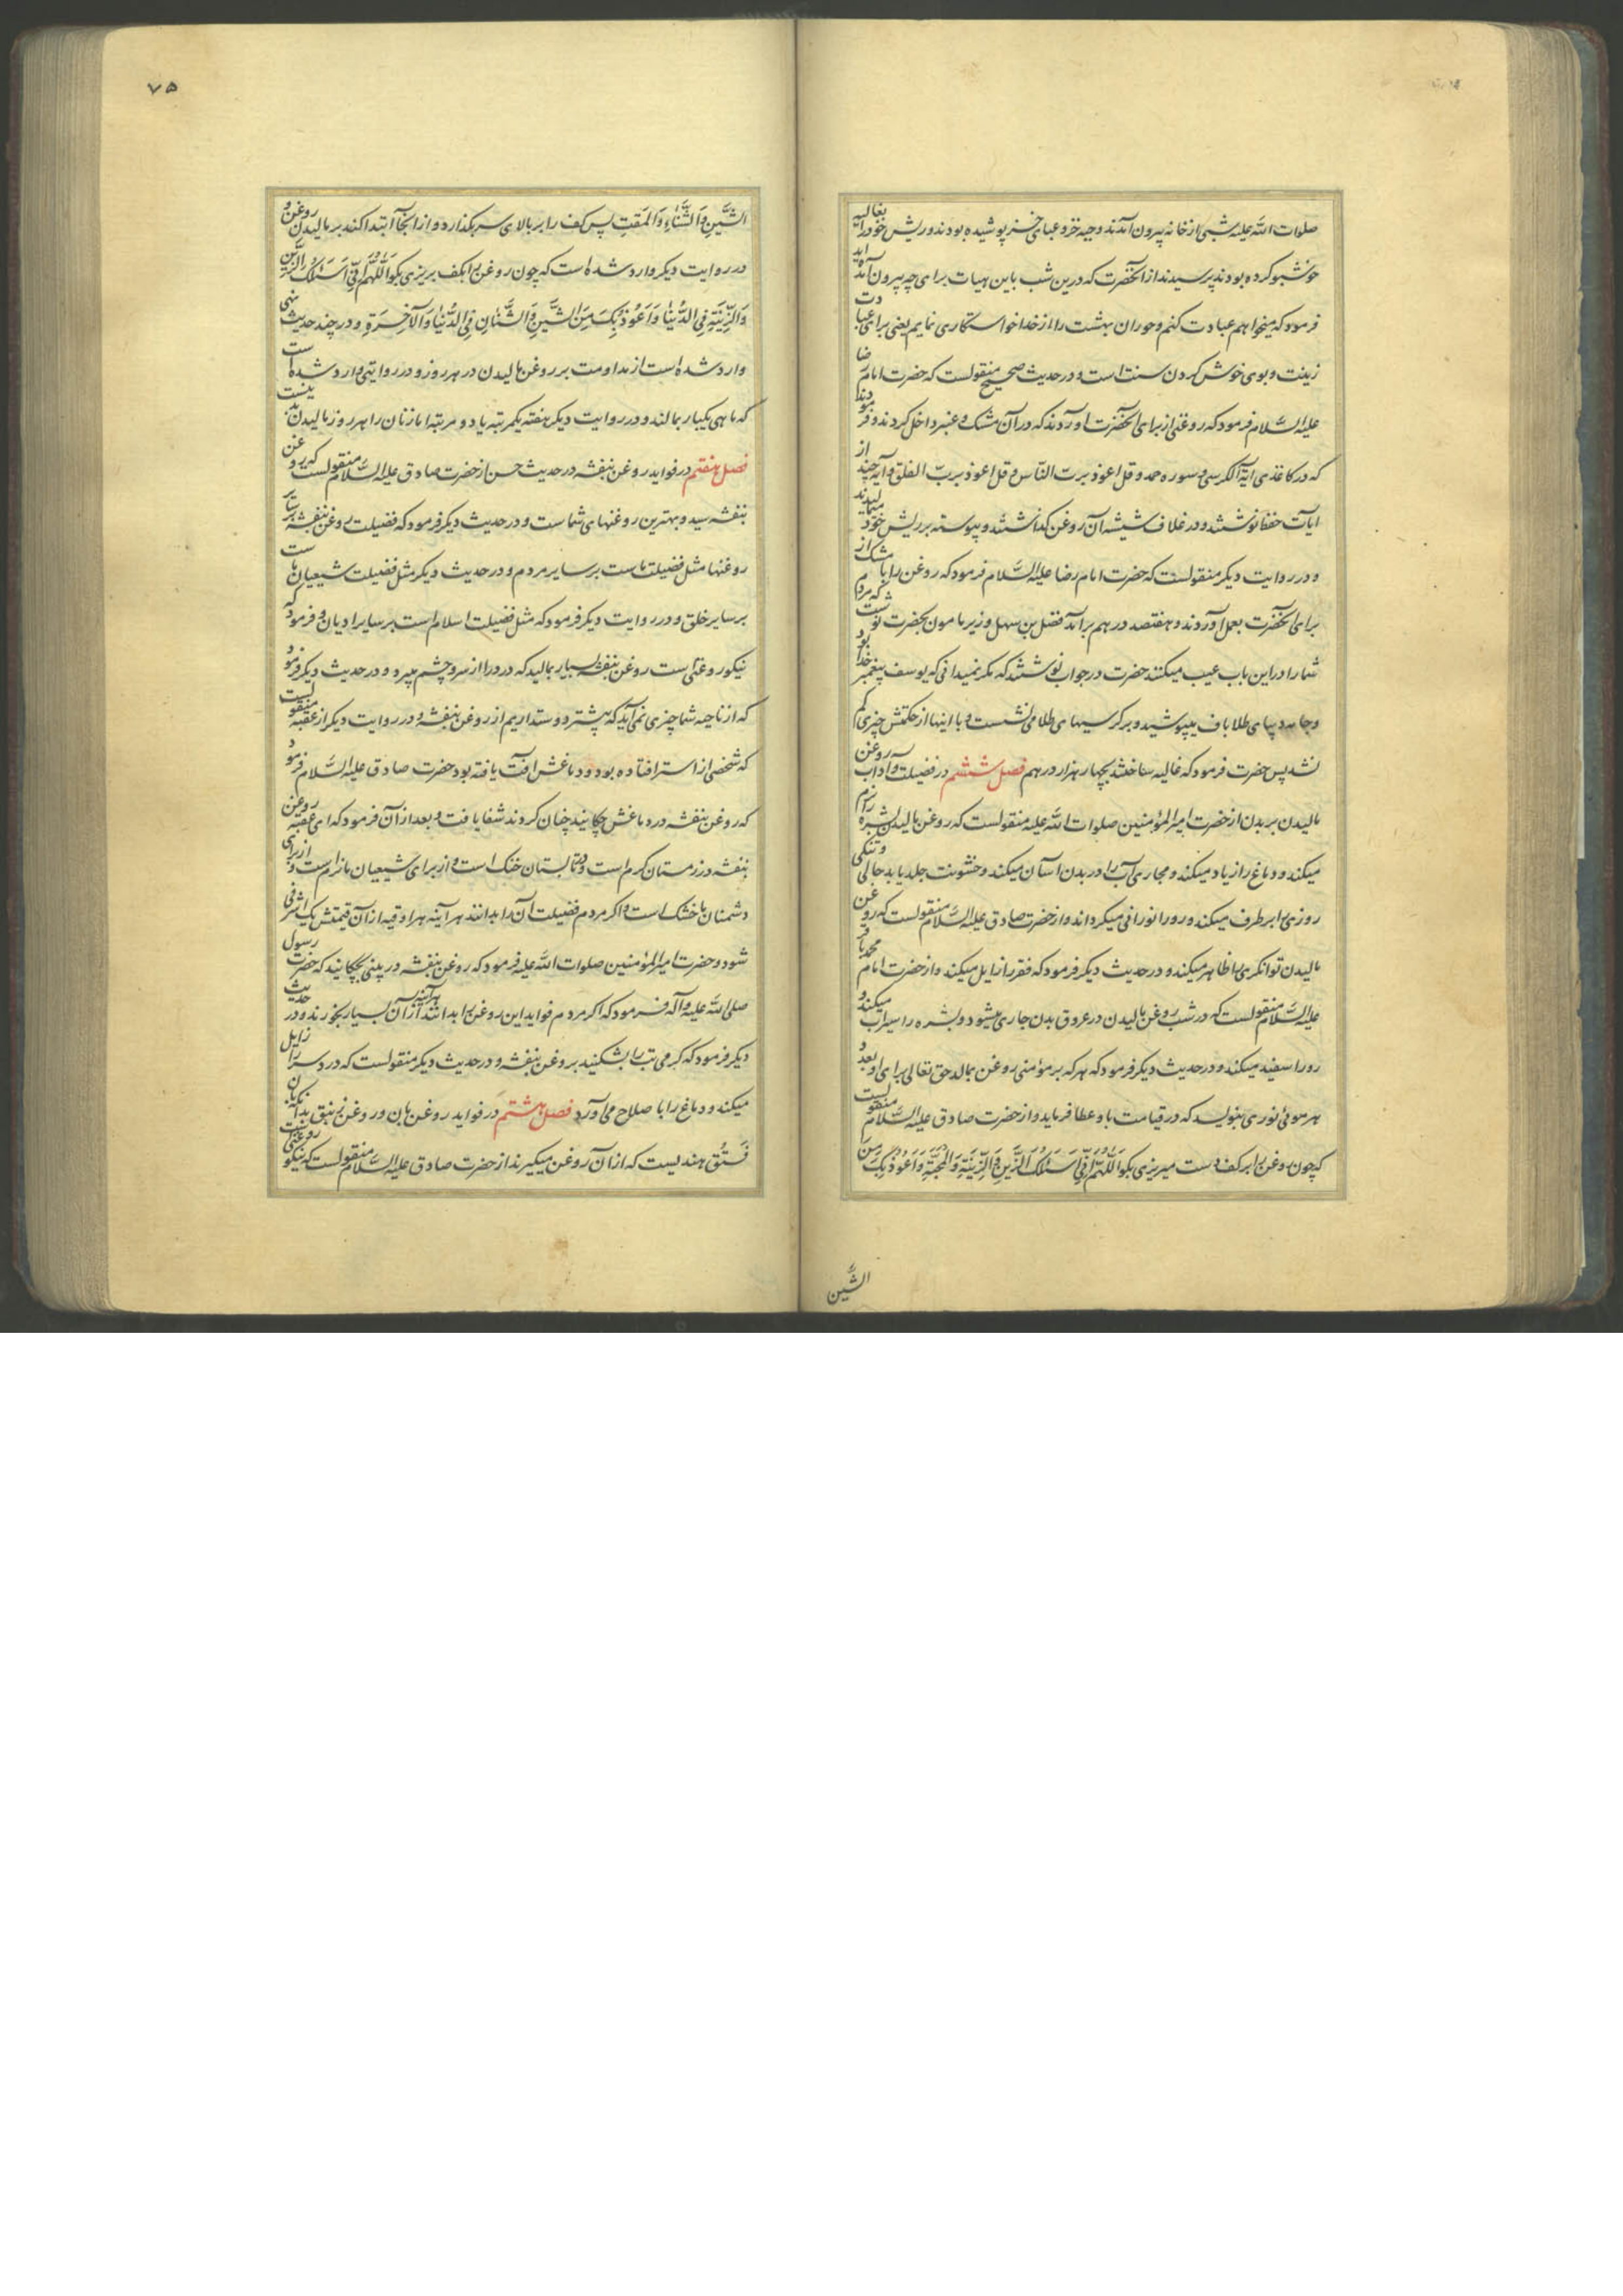 صلوات الله علیه شبی از خانه بیرون آمدند و جبه خز و عبای خز پوشیده بودند و ریش خود را بغالیه
خوشبو کرده بودند پرسیدند از آنحضرت که درین شب باین هیات برای چه بیرون آمده اید
فرمود که میخواهم عبادت کنم و حوران بهشت را از خدا خواستکاری نمایم یعنی برای عبادت
زینت و بوی خوش کردن سنت است و در حدیث صحیح منقولست که حضرت امام رضا
علیه السّلام فرمود که روغنی از برای آنحضرت آوردند که در آن مشک و عنبر داخل کردند و فرمودند
که در کاغذی آیة الکرسی و سوره حمد و قل اعوذ بربّ النّاس و قل اعوذ بربّ الفلق و آیه چند از
ایات حفظ نوشتند و در غلاف شیشه آن روغن گذاشتند و پیوسته بر ریش خود میمالیدند
و در روایت دیگر منقولست که حضرت امام رضا علیه السّلام فرمود که روغن را با مشک از
برای آنحضرت بعمل آوردند و هفتصد درهم برآمد فضل بن سهل وزیر مامون بحضرت نوشت که مردم
شما را در این باب عیب میکنند حضرت در جواب نوشتند که مگر نمیدانی که یوسف پیغمبر خدا بود
و جامه دیبای طلاباف میپوشید و بر کرسیهای طلا می نشست و با اینها از حکمتش چیزی کم
نشد پس حضرت فرمود که غالیه ساختند بچهار هزار درهم فصل ششم در فضیلت و آداب روغن
مالیدن بر بدن از حضرت امیر المؤمنین صلوات الله علیه منقولست که روغن مالیدن بشره را نرم
میکند و دماغ را زیاد میکند و مجاری آب را در بدن آسان میکند و خشونت جلد یا بدحالی و تنگی
روزی را برطرف میکند و رو را نورانی میگرداند و از حضرت صادق علیه السّلام منقولست که روغن
مالیدن توانگری را ظاهر میکند و در حدیث دیگر فرمود که فقر را زایل میکند و از حضرت امام محمد باقر
علیه السّلام منقولست که در شب روغن مالیدن در عروق بدن جاری میشود و بشره را سیراب میکند و
رو را سفید میکند و در حدیث دیگر فرمود که هر که بر مؤمنی روغن بمالد حق تعالی برای او بعدد
هر موئی نوری بنویسد که در قیامت باو عطا فرماید و از حضرت صادق علیه السّلام منقولست
که چون روغن را بر کف دست میریزی بگو اَللّٰهُمَّ اِنِّی اَسْئَلُکَ الزَّیْنَ وَ الزِّینَةَ وَ الْمَحَبَّةَ وَ اَعُوذُ بِکَ مِنَ
الشَّین
۷۵
الشَّیْنِ وَ الشَّنَاٰنِ وَ الْمَقْتِ پس کف را بر بالای سر بگذارد و از آنجا ابتدا کند بر مالیدن روغن و
در روایت دیگر وارد شده است که چون روغن را بکف بریزی بگو اَللّٰهُمَّ اِنِّی اَسْئَلُکَ الزَّیْنَ
وَ الزِّینَةَ فِی الدُّنْیٰا وَ اَعُوذُ بِکَ مِنَ الشَّیْنِ وَ الشَّنَاٰنِ فِی الدُّنْیٰا وَ الْآخِرَةِ و در چند حدیث نهی
وارد شده است از مداومت بر روغن مالیدن در هر روز و در روایتی وارد شده است
که ماهی یکبار بمالند و در روایت دیگر هفته یکمرتبه یا دو مرتبه اما زنان را هر روز مالیدن بد نیست
فصل هفتم در فواید روغن بنفشه در حدیث حسن از حضرت صادق علیه السّلام منقولست که روغن
بنفشه سید و بهترین روغنهای شماست و در حدیث دیگر فرمود که فضیلت روغن بنفشه بر سایر
روغنها مثل فضیلت ماست بر سایر مردم و در حدیث دیگر مثل فضیلت شیعیان ماست
بر سایر خلق و در روایت دیگر فرمود که مثل فضیلت اسلام است بر سایر ادیان و فرمود که
نیکو روغنی است روغن بنفشه بسیار بمالید که درد را از سر و چشم میبرد و در حدیث دیگر فرمود
که از ناحیه شما چیزی نمی آید که بیشتر دوست داریم از روغن بنفشه و در روایت دیگر از عقبه منقولست
که شخصی از استر افتاده بود و دماغش آفت یافته بود حضرت صادق علیه السّلام فرمود
که روغن بنفشه در دماغش چکانید چنان کردند شفا یافت و بعد از آن فرمود که ای عقبه روغن
بنفشه در زمستان گرم است و در تابستان خنک است و از برای شیعیان ما نرم است و از برای
دشمنان ما خشک است و اگر مردم فضیلت آن را بدانند هر آینه هر اوقیه از آن قیمتش یک اشرفی
شود و حضرت امیر المؤمنین صلوات الله علیه فرمود که روغن بنفشه در بینی بچکانید که حضرت رسول
صلی الله علیه و آله فرمود که اگر مردم فواید این روغن را بدانند هر آینه از آن بسیار بخورند و در حدیث
دیگر فرمود که گرمی تب را بشکنید بروغن بنفشه و در حدیث دیگر منقولست که درد سر را زایل
میکند و دماغ را با صلاح می آورد فصل هشتم در فواید روغن بان و روغن زنبق بدانکه بان
فستق هندیست که از آن روغن میگیرند از حضرت صادق علیه السّلام منقولست که نیکو روغنی است